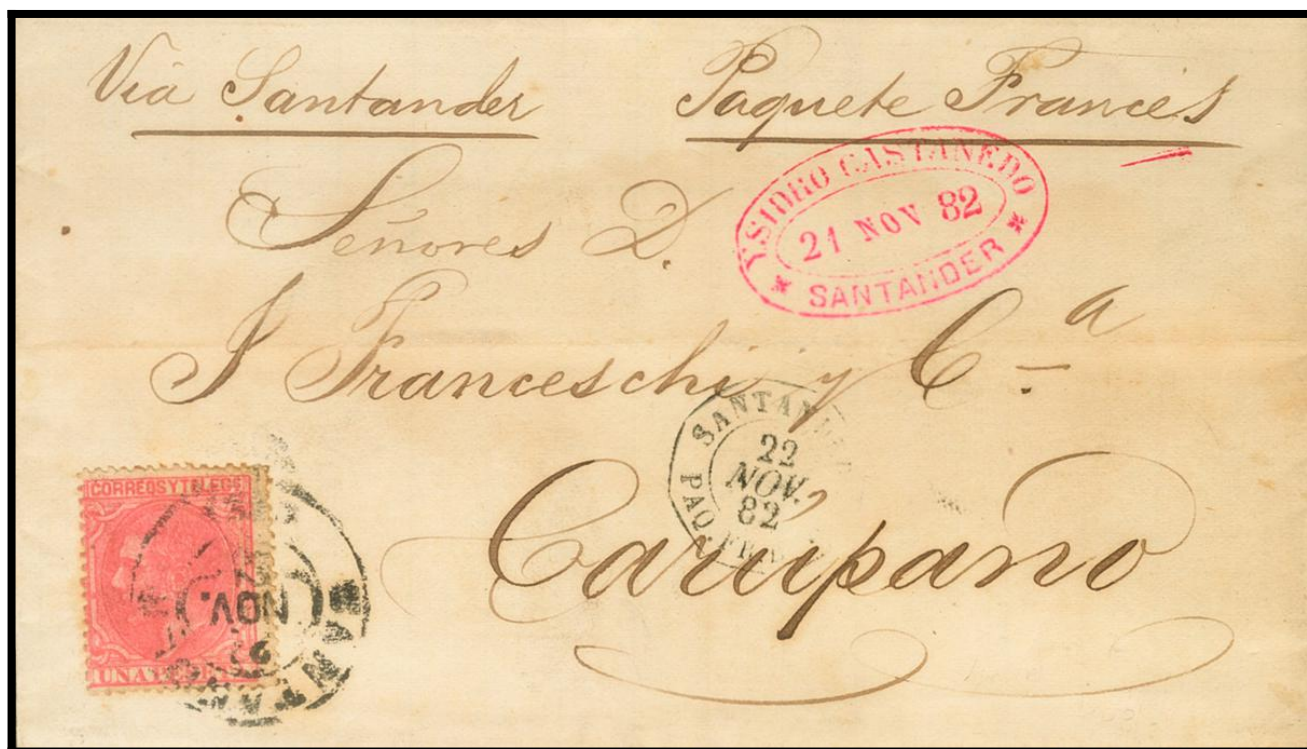 Via Santander Paquete Frances
YSIDRO CASTANEDO
21 NOV 82
SANTANDER
Señores D.
J Franceschi y Cª
SANTANDER
22
NOV.
82
PAQ. FR.
Carupano
CORREOS Y TELEGS
NOV.
UNA